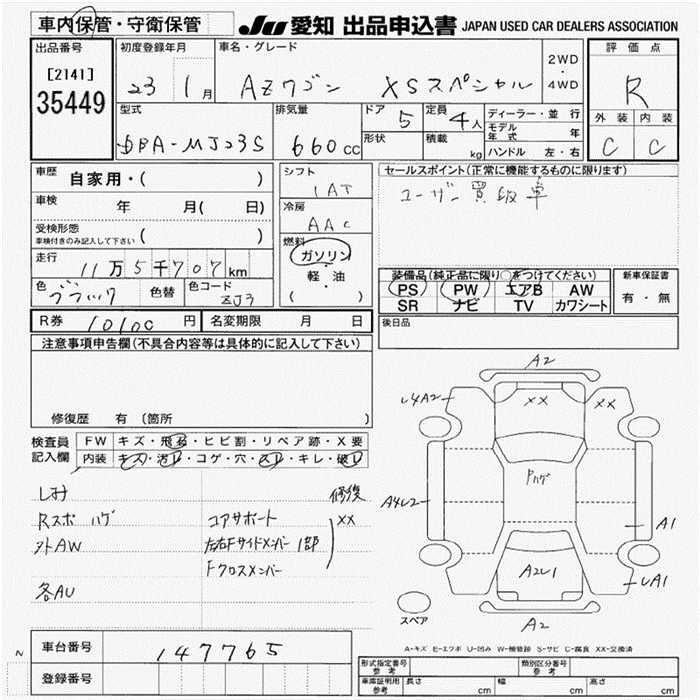 車内保管・守衛保管
JU 愛知 出品申込書 JAPAN USED CAR DEALERS ASSOCIATION
出品番号
[2141]
35449
初度登録年月
23 1月
車名・グレード
AZワゴン XSスペシャル
2WD
・
4WD
評価点
R
外装 内装
C C
型式
DBA-MJ23S
排気量
660cc
ドア 5
形状
定員 4人
積載 kg
ディーラー・並行
モデル年式 年
ハンドル 左・右
車歴 自家用・( )
車検 年 月( 日)
受検形態
車検付きのみ記入して下さい ( )
走行 11万5千707km
色 ブラック 色替 色コード ZJ3
シフト
IAT
冷房
AAC
燃料
ガソリン
・
軽・油
( )
セールスポイント(正常に機能するものに限ります)
ユーザー買取車
装備品(純正品に限り○をつけてください)
PS PW エアB AW
SR ナビ TV カワシート
新車保証書
有・無
R券 10100円 名変期限 月 日
後日品
注意事項申告欄(不具合内容等は具体的に記入して下さい)
修復歴 有 (箇所 )
検査員記入欄
FW キズ・飛石・ヒビ割・リペア跡・X要
内装 キズ・汚レ・コゲ・穴・スレ・キレ・破レ
シミ 修復
Rスポ ハゲ コアサポート XX
外AW 左右Fサイドメンバー1部
Fクロスメンバー
各AU
A2
XX XX
Pハゲ
A1
A2
スペア
A-キズ E-エクボ U-凹み W-補修跡 S-サビ C-腐食 XX-交換済
N
車台番号 147765
登録番号
形式指定番号 参考
類別区分番号 参考
車庫証明用 参考 長さ cm 幅 cm 高さ cm